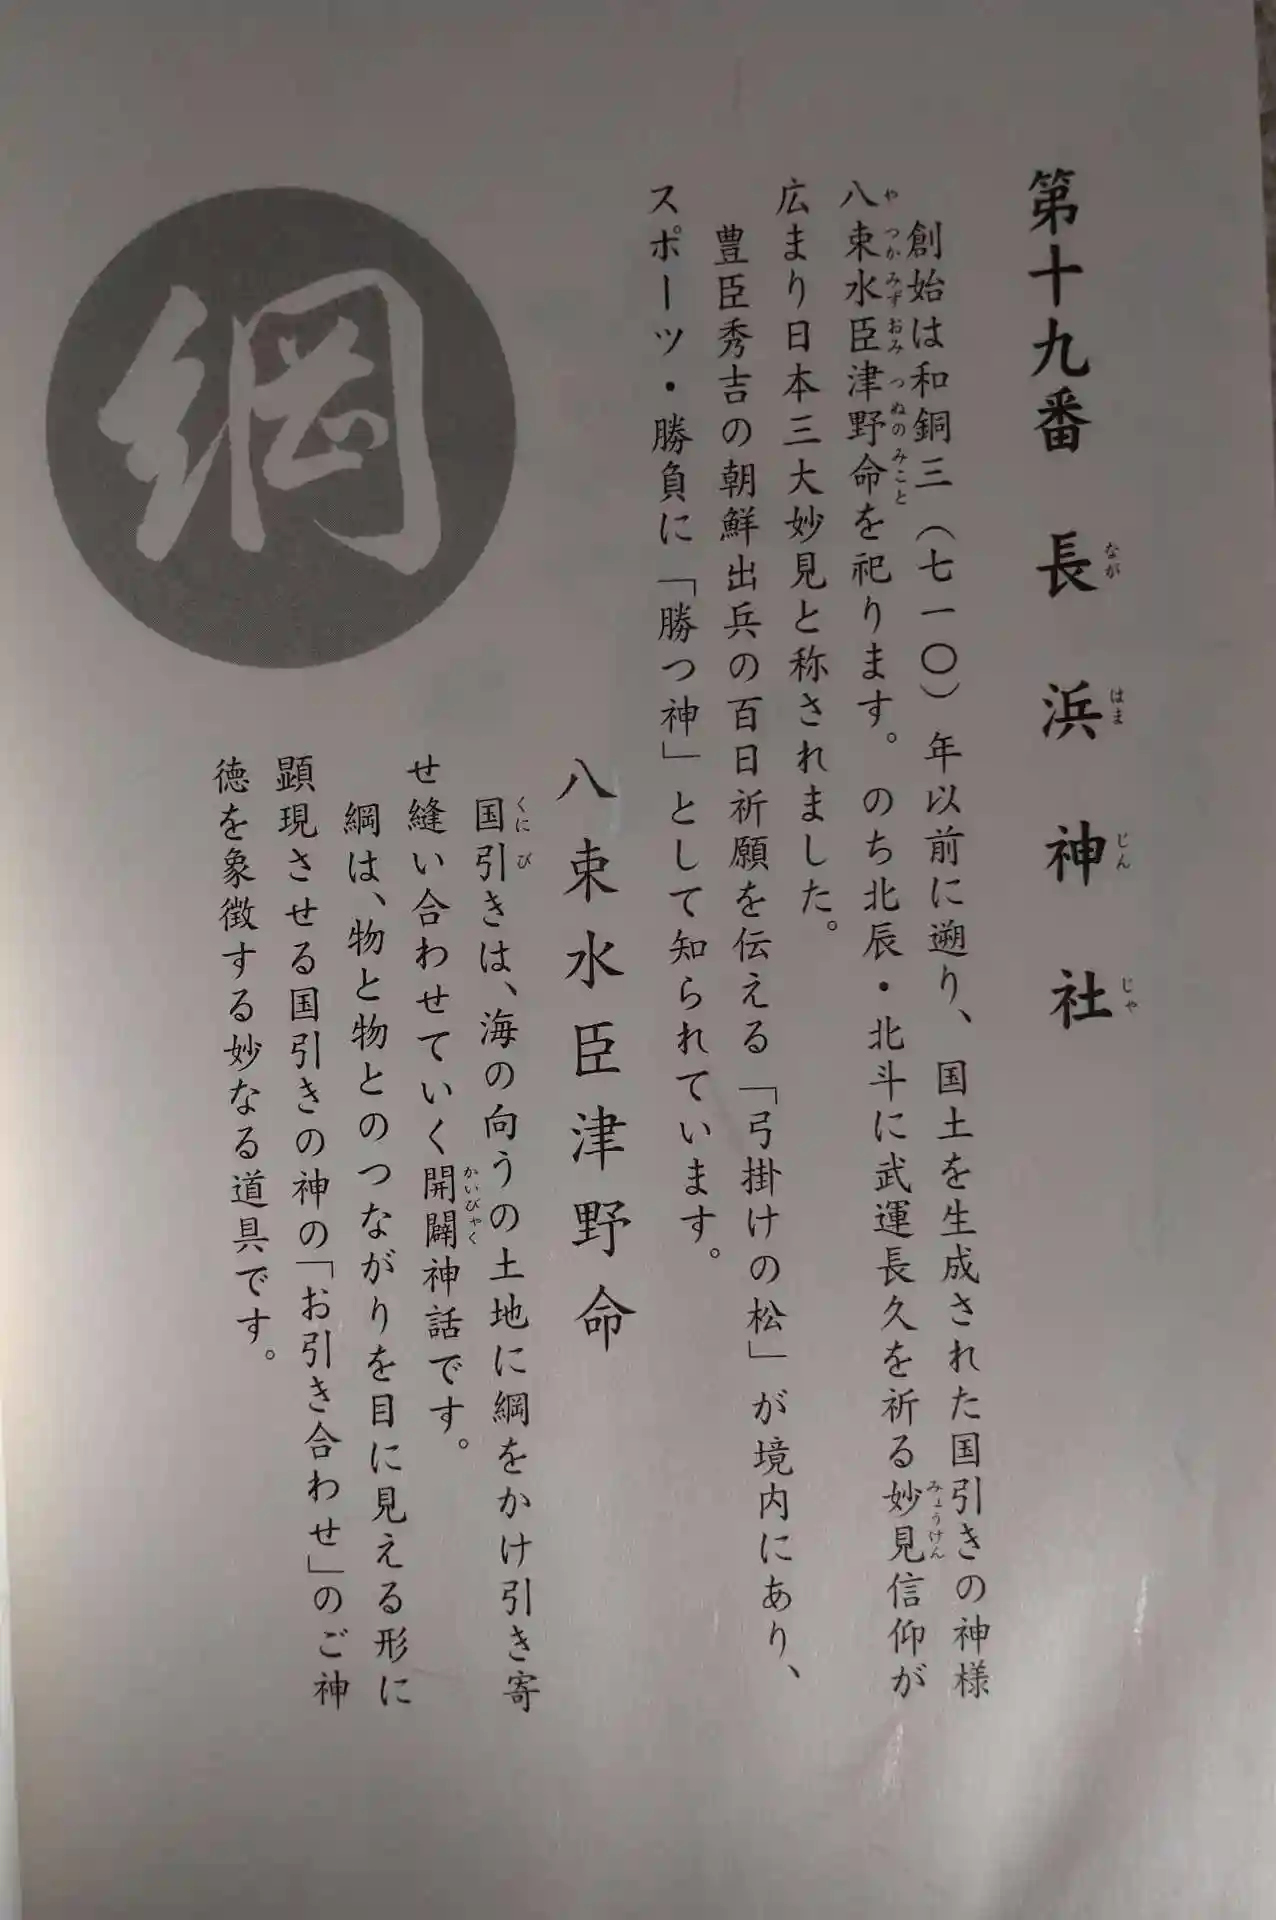 第十九番 長浜神社
ながはまじんじゃ
創始は和銅三（七一〇）年以前に遡り、国土を生成された国引きの神様
八束水臣津野命を祀ります。のち北辰・北斗に武運長久を祈る妙見信仰が
やつかみずおみつぬのみこと
みょうけん
広まり日本三大妙見と称されました。
豊臣秀吉の朝鮮出兵の百日祈願を伝える「弓掛けの松」が境内にあり、
スポーツ・勝負に「勝つ神」として知られています。
八束水臣津野命
国引きは、海の向うの土地に綱をかけ引き寄
くにび
せ縫い合わせていく開闢神話です。
かいびゃく
綱は、物と物とのつながりを目に見える形に
顕現させる国引きの神の「お引き合わせ」のご神
徳を象徴する妙なる道具です。
綱